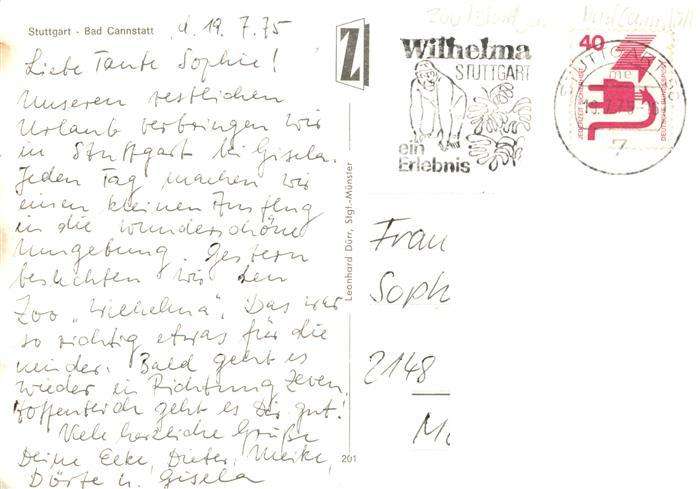 Stuttgart - Bad Cannstatt
d. 19.7.75
Liebe Tante Sophie!
Unseren restlichen
Urlaub verbringen wir
in Stuttgart bei Gisela.
Jeden Tag machen wir
einen kleinen Ausflug
in die wunderschöne
Umgebung. Gestern
besichten wir den
Zoo „Wilhelma". Das war
so richtig etwas für die
Kinder. Bald geht es
wieder in Richtung Zeven.
Hoffentlich geht es Dir gut!
Viele herzliche Grüße
Deine Elke, Dieter, Meike,
Dörte u. Gisela
Z
Leonhard Dürr, Stgl.-Münster
201
Wilhelma
STUTTGART
ein
Erlebnis
40
JEDERZEIT SICHERHEIT
DEUTSCHE BUNDESPOST
STUTTGART
7
Frau
Soph
2148